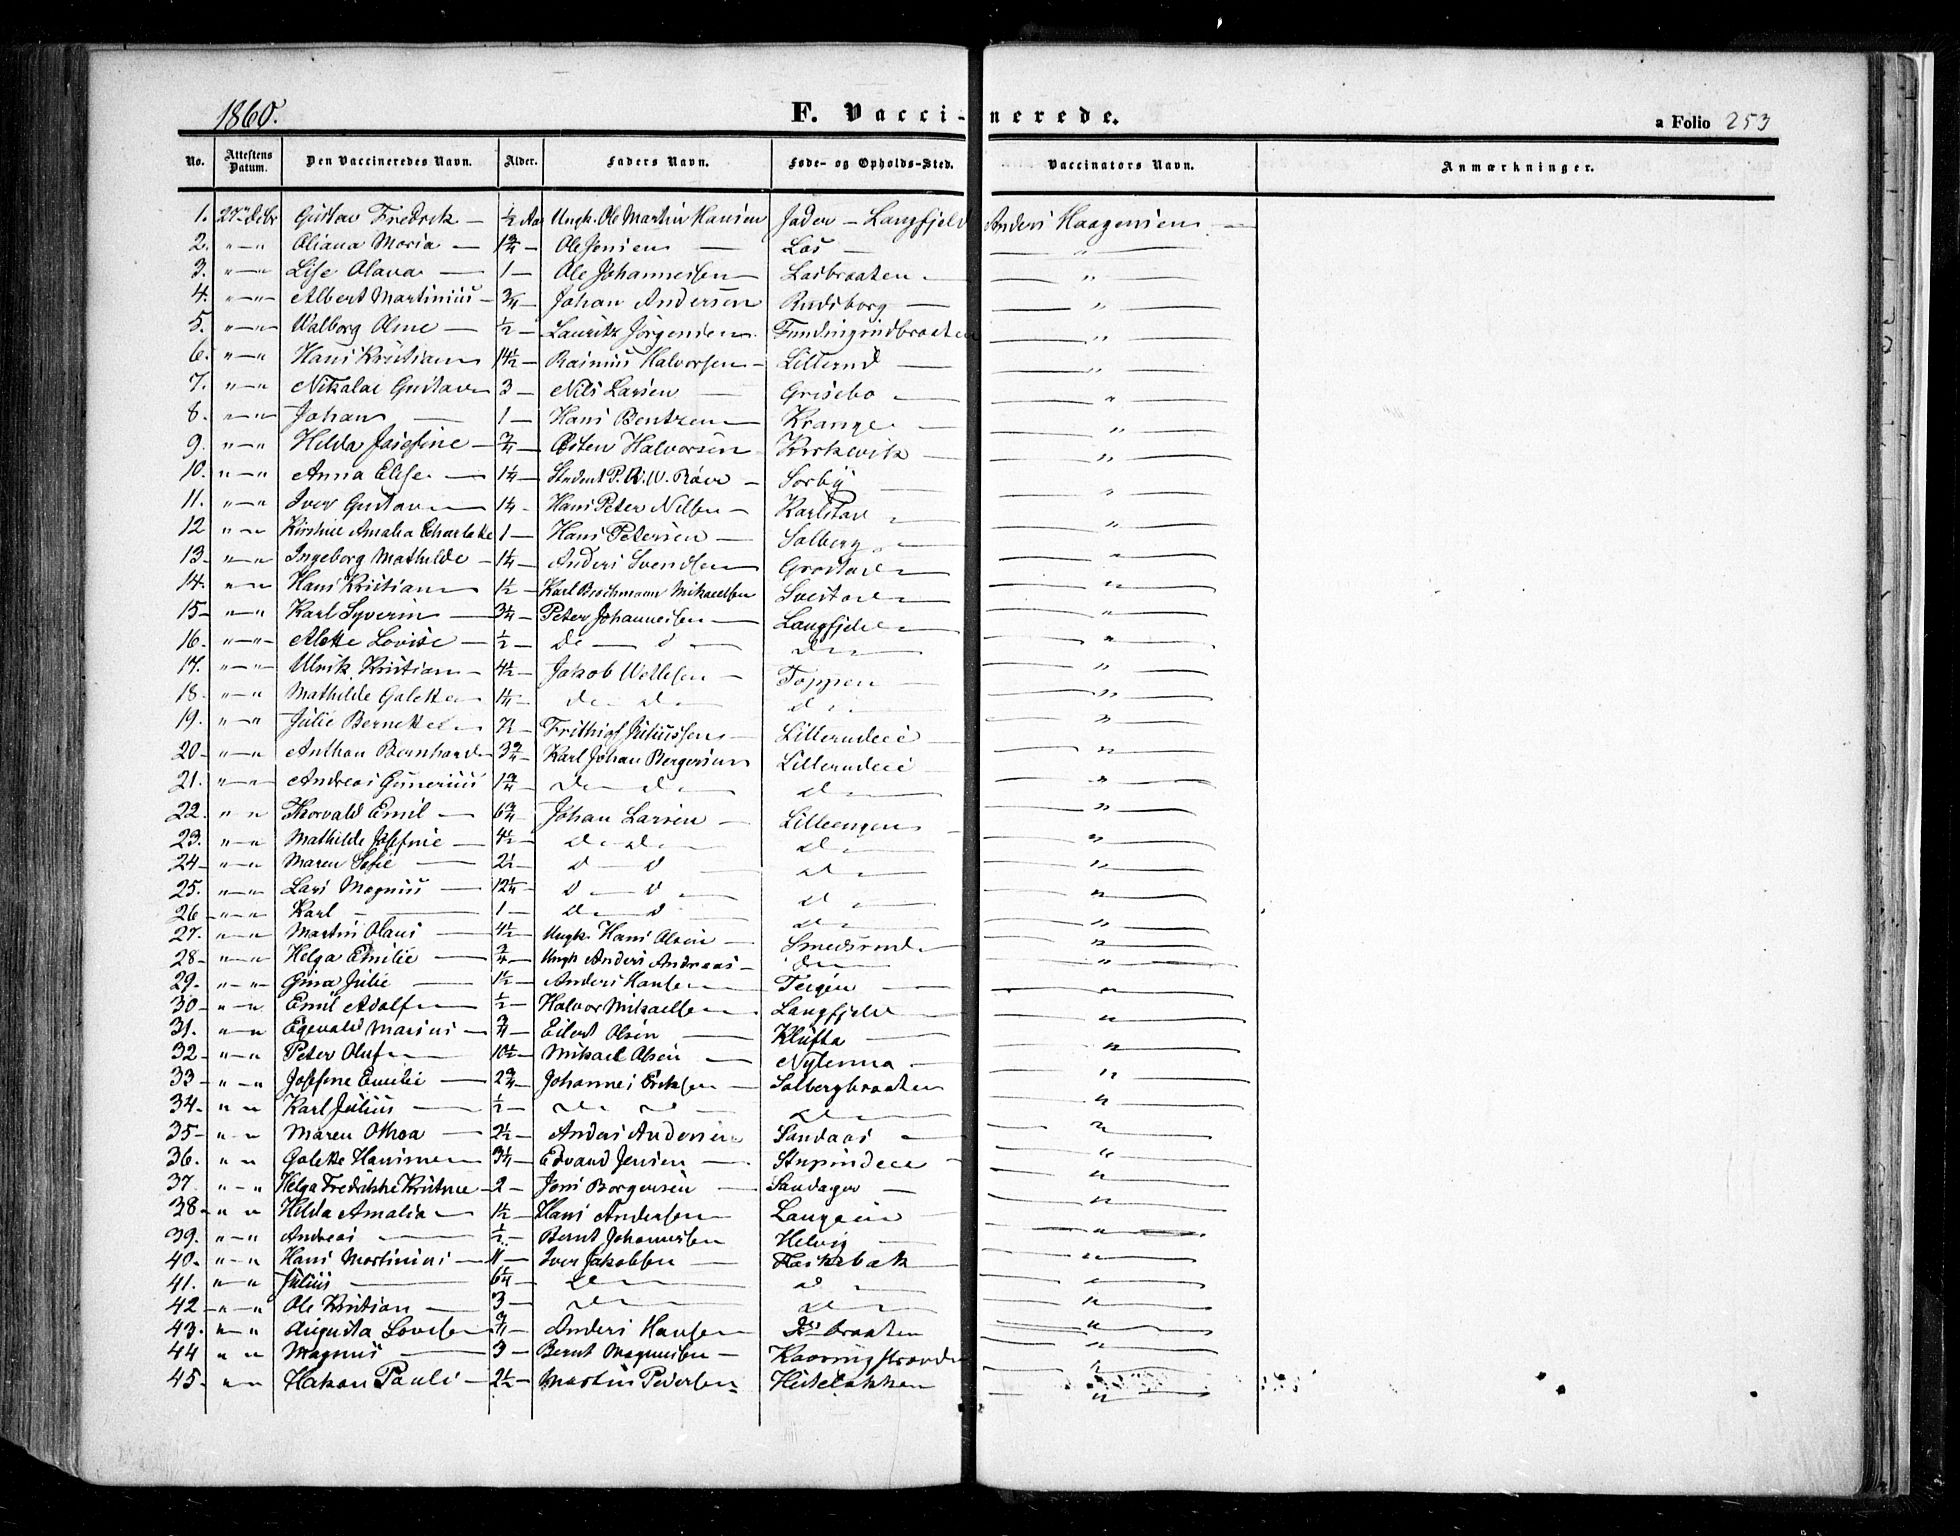 1860. F. Vaccinerede. a Folio 253
No. Attestens Datum. Den Vaccineredes Navn. Alder. Faders Navn. Føde- og Opholds-Sted. Vaccinators Navn. Anmærkninger.
1. 27de Dcbr Gustav Fredrik — ½ Aar Ungk. Ole Martin Hansen Jader — Langfjeld Anders Haagensen —
2. " — " Oliana Maria — 1¾ — Ole Jensen — Las — "
3. " — " Lise Olava — 1 — Ole Johannessen — Lasbraaten — "
4. " — " Albert Martinius — ¾ — Johan Andersen Rudsborg — "
5. " — " Valborg Oline — ½ — Lauritz Jørgensen Fundingrudbraaten "
6. " — " Hans Kristian 14½ — Rasmus Halvorsen — Lillerud — "
7. " — " Nikolai Gustav 3 — Nils Larsen — Grisebo — "
8. " — " Johan — 1 — Hans Bentzen Krange — "
9. " — " Hilda Josefine — ¾ — Østen Halvorsen Kirkevik — "
10. " — " Anna Elise — 1¼ — Student P. — Sorby — "
11. " — " Iver Gustav 1¼ — Hans Peter Nilsen — Karlstad "
12 " — " Kirstine Amalia Charlotte 1 — Hans Petersen — Solberg — "
13. " — " Ingeborg Mathilde — 1¼ — Anders Svendsen "
14. " — " Hans Kristian 1½ — Karl Brochmann Mikaelsen "
15 — " " Karl Syverin 3¼ — Peter Johannessen — Langfjeld "
16. " — " Alette Lovise — ½ — do — d — do "
17. " — " Ulrik Kristian — 4½ — Jakob Wetlesen — Toppen — "
18. " — " Mathilde Galette 1¼ — do do do "
19. " — " Julie Bernette 7½ — Frithiof Juliussen — Lillerudeie — "
20 — " — " Anthon Bernhard 3¾ — Karl Johan Bergersen Lillerudeie — "
21. " — " Andreas Gunerius 1¾ — do do do "
22. " " Thorvald Emil — 6¾ — Johan Larsen — Lilleengen — "
23. " — " Mathilde Josefine — 4½ — do do do "
24 — " — " Maren Sofie — 2¼ — d — d — do "
25. " — " Lars Magnus — 12¼ — d — d — do "
26 — " — " Karl — 1 — do d — do "
27. " — " Martin Olaus — 4½ — Ungk. Hans Olsen — Smedsrud — "
28 — " — " Helga Emilie — ¾ — Ungk Anders Andreas — do "
29. " — " Gina Julie — 1½ — Anders Hansen Teigen — "
30 — " — " Emil Adolf ½ — Halvor Mikaelsen Langfjeld — "
31. " " Egevald Marius — ¾ — Eilert Olsen — Klufta — "
32 — " — " Peter Oluf — 10½ — Mikael Olsen — Nylenna — "
33 — " — " Josefine Emilie — 2¾ — Johannes Eriksen — Solbergbraaten "
34 — " " Karl Julius — ½ — do do do "
35 — " — " Maren Othea — 2½ — Anders Andersen Sandaas — "
36. " " Galette Hansine 3¼ — Edvard Jensen — "
37. " — " Helga Fredrikke Kristine — 2 — Jens Borgersen — Sandager — "
38 — " " Hilda Amalia — 1½ — Hans Andersen "
39. " — " Andreas — ½ — Bernt Johannesen Helvig — "
40 — " — " Hans Martinius — 11 — Iver Jakobsen — "
41. " — " Julius — 6¼ — do d "
42 — " — " Ole Kristian — 3 — do do "
43. " — " Augusta Lovise ¾ — Anders Hansen — braaten "
44 " " Magnus — 3 — Bernt Magnusen — "
45. " — " Hakon Pauli — 2½ — Martin Pedersen "